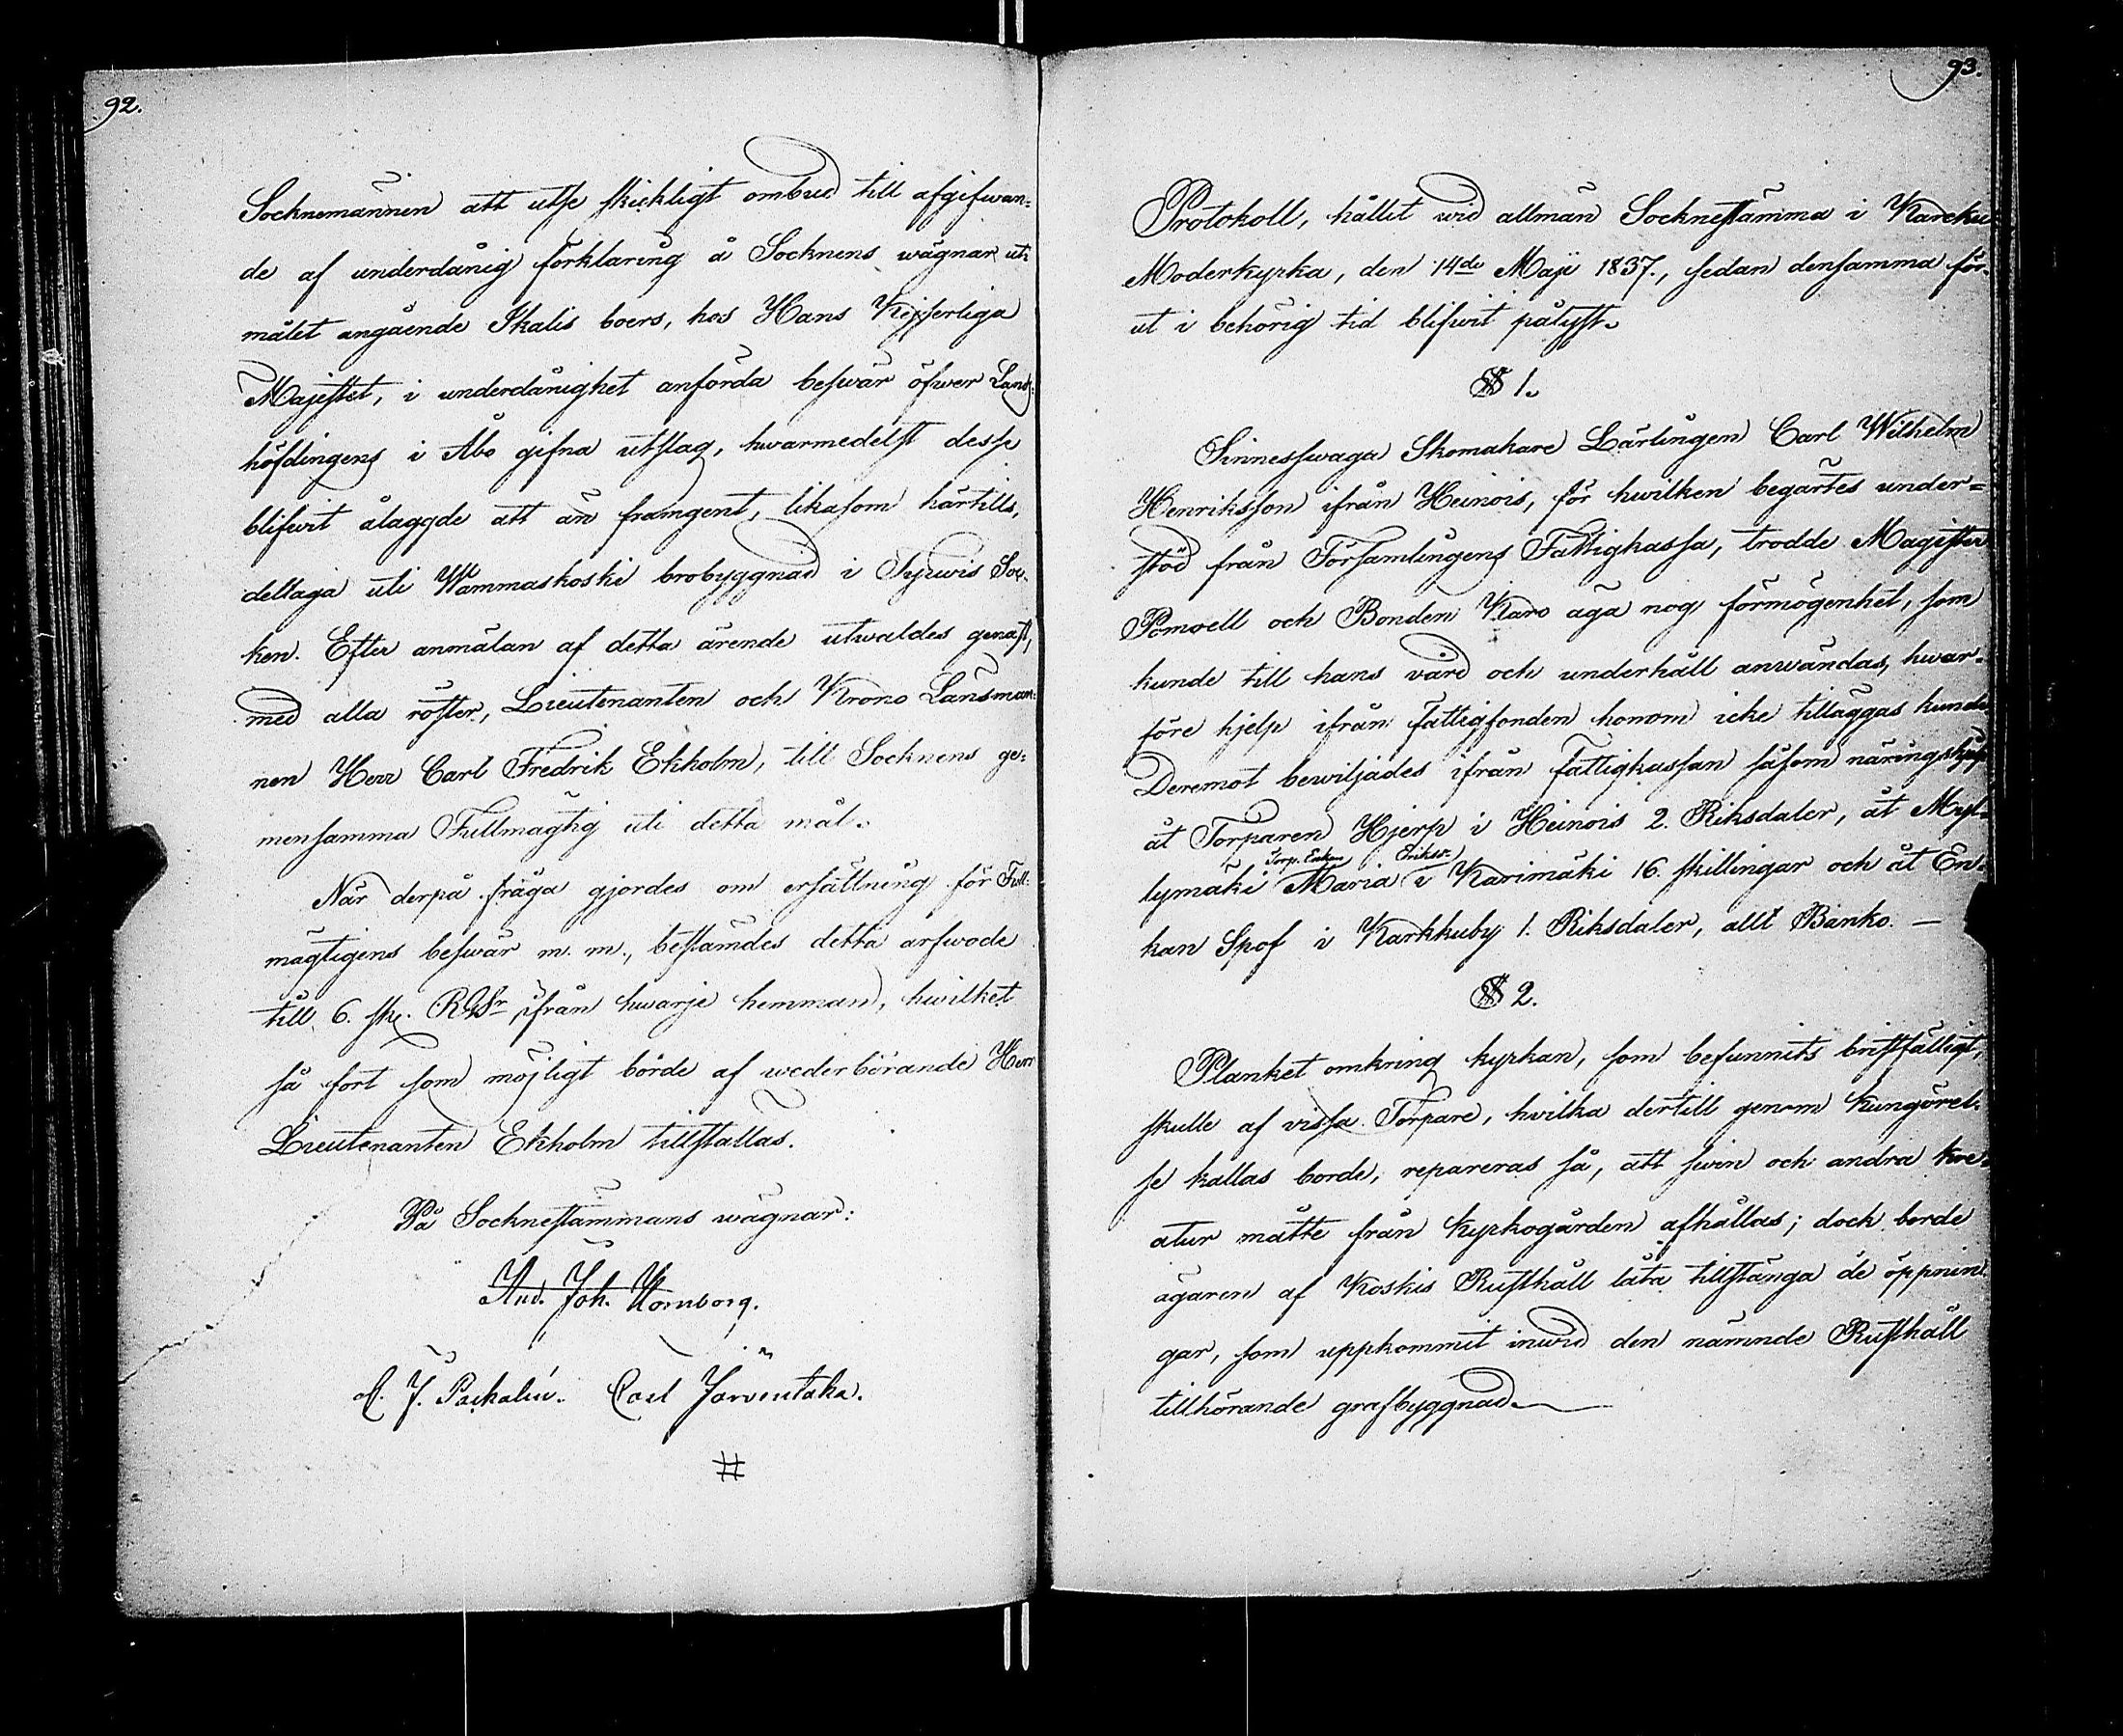 92.
Socknemännen att utse skickligt ombud till afgifwan-
de af underdånig förklaring å Socknens wägnar uti
målet angående Skalis boers, hos Hans Kejserliga
Majestet, i underdånighet anförda beswär öfwer Lands-
höfdingens i Åbo gifna utslag, hwarmedelst desse
blifwit ålaggde att än framgent, likasom härtills,
deltaga uti Wammaskoski brobyggnad i Tyrwis Soc-
ken. Efter anmälan af detta ärende utwaldes genast,
med alla röster, Lieutenanten och Krono Länsman-
nen Herr Carl Fredrik Ekholm, till Socknens ge-
mensamma Fullmägtig uti detta mål.
När derpå fråga gjordes om ersättning för Full-
mägtigens beswär m. m., bestämdes detta arfwode
till 6. sk. ifrån hwarje hemman, hwilket
så fort som möjligt börde af wederbörande Herr
Lieutenanten Ekholm tillställas.
På Socknestämmans wägnar:
And. Joh. Hornborg.
C. J. Packalén. Carl Järventaka.
#
93.
Protokoll, hållit wid allmän Socknestända i Karcku
Moderkyrka, den 14de Maji 1837., sedan densamma för-
ut i behörig tid blifwit pålyst.
§ 1.
Sinnesswaga Skomakare Lärlingen Carl Wilhelm
Henriksson ifrån Heinois, för hwilken begärtes under-
stöd från Församlingens Fattigkassa, trodde Magister
Pomoell och Bonden Karo äga nog förmögenhet, som
kunde till hans vård och underhåll anwändas, hwar-
före hjelp ifrån fattigfonden honom icke tilläggas kunde
Deremot bewiljades ifrån fattigkassan såsom näringshjelp
åt Torparen Hjerp i Heinois 2. Riksdaler, åt Myl-
Torp. Enkan Eriksdr
lymäki Maria i Karimäki 16. skillingar och åt En-
kan Spof i Karkkuby 1. Riksdaler, allt Banko. —
§ 2.
Planket omkring kyrkan, som befunnits bristfälligt,
skulle af vissa Torpare, hvilka dertill genom Kungörel-
se kallas borde, repareras så, att swin och andra kre-
atur måtte från kyrkogården afhållas; dock borde
ägaren af Koskis Rusthåll låta tillstänga de öppnin-
gar, som uppkommit inwid den nämnde Rusthåll
tillhörande grafbyggnad.